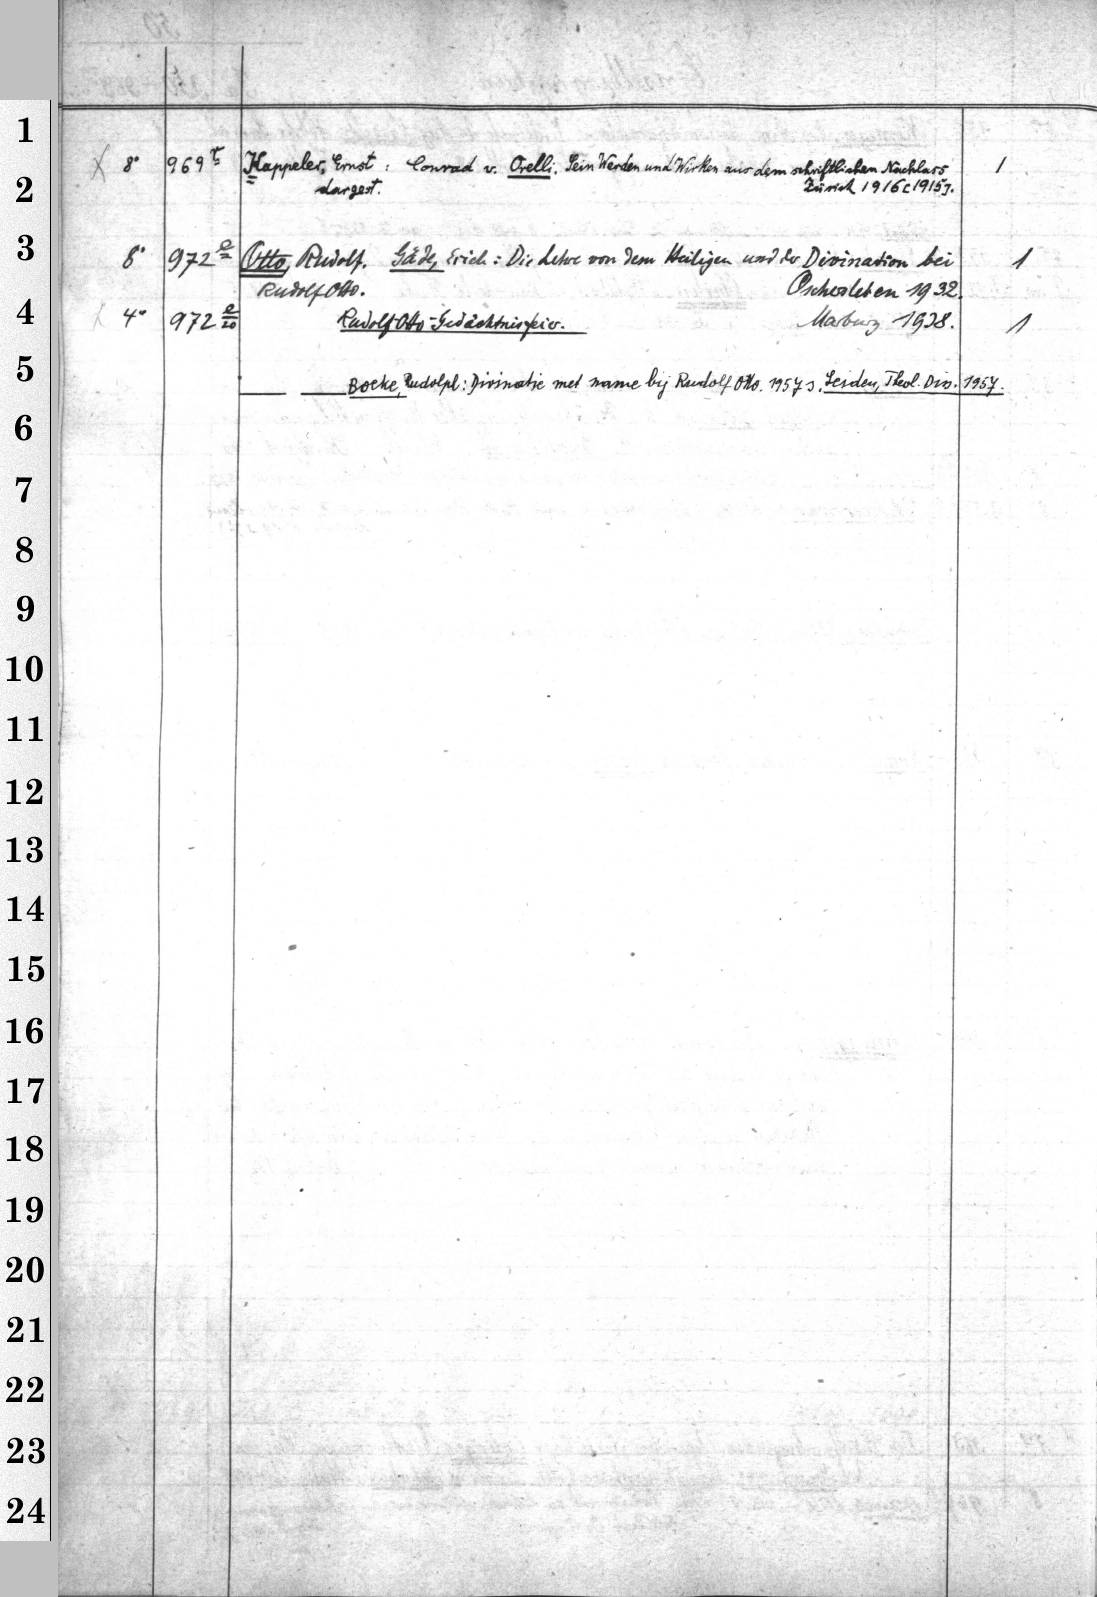 1
2
3
4
5
6
7
8
9
10
11
12
13
14
15
16
17
18
19
20
21
22
23
24
8° 969 Kappeler, Ernst: Conrad v. Orelli. Sein Werden und Wirken aus dem schriftlichen Nachlass 1
dargest. Zürich 1916 [1915].
8° 972 Otto, Rudolf. Gäde, Erich: Die Lehre von dem Heiligen und der Divination bei 1
Rudolf Otto. Oschersleben 1932.
4° 972 e/20 Rudolf Otto-Gedächtnisfeier. Marburg 1938. 1
Boeke, Rudolph: Divinatie met name bij Rudolf Otto. 1957 Leiden, Theol. Diss. 1957.